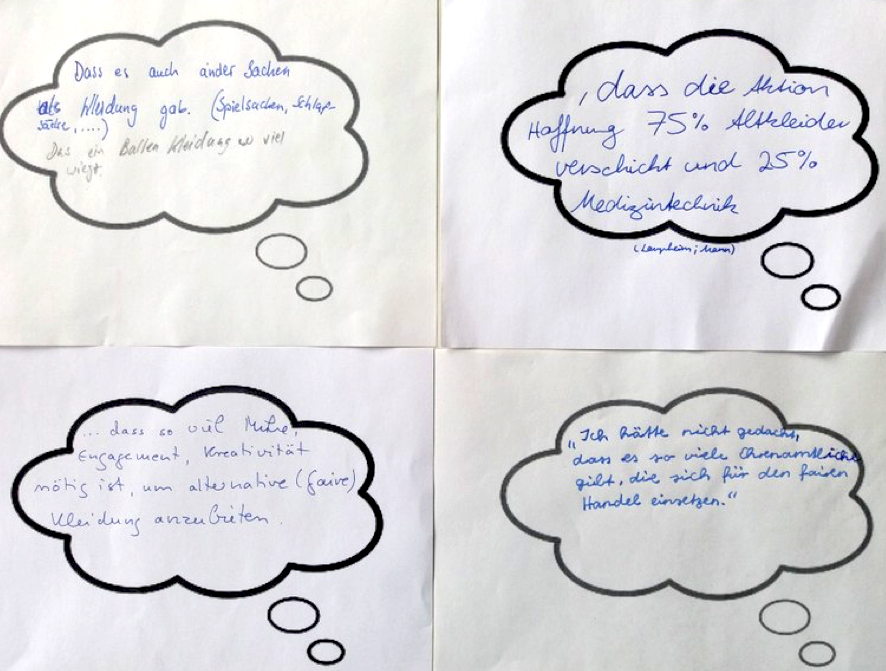 Dass es auch ander Sachen
als Kleidung gab. (Spielsachen, Schlaf-
säcke, ....)
Das ein Ballen Kleidung so viel
wiegt.
, dass die Aktion
Hoffnung 75% Altkleider
verschickt und 25%
Medizintechnik
(Laupheim; Mann)
... dass so viel Mühe,
Engagement, Kreativität
nötig ist, um alternative (faire)
Kleidung anzubieten.
„Ich hätte nicht gedacht,
dass es so viele Ehrenamtliche
gibt, die sich für den fairen
Handel einsetzen.“